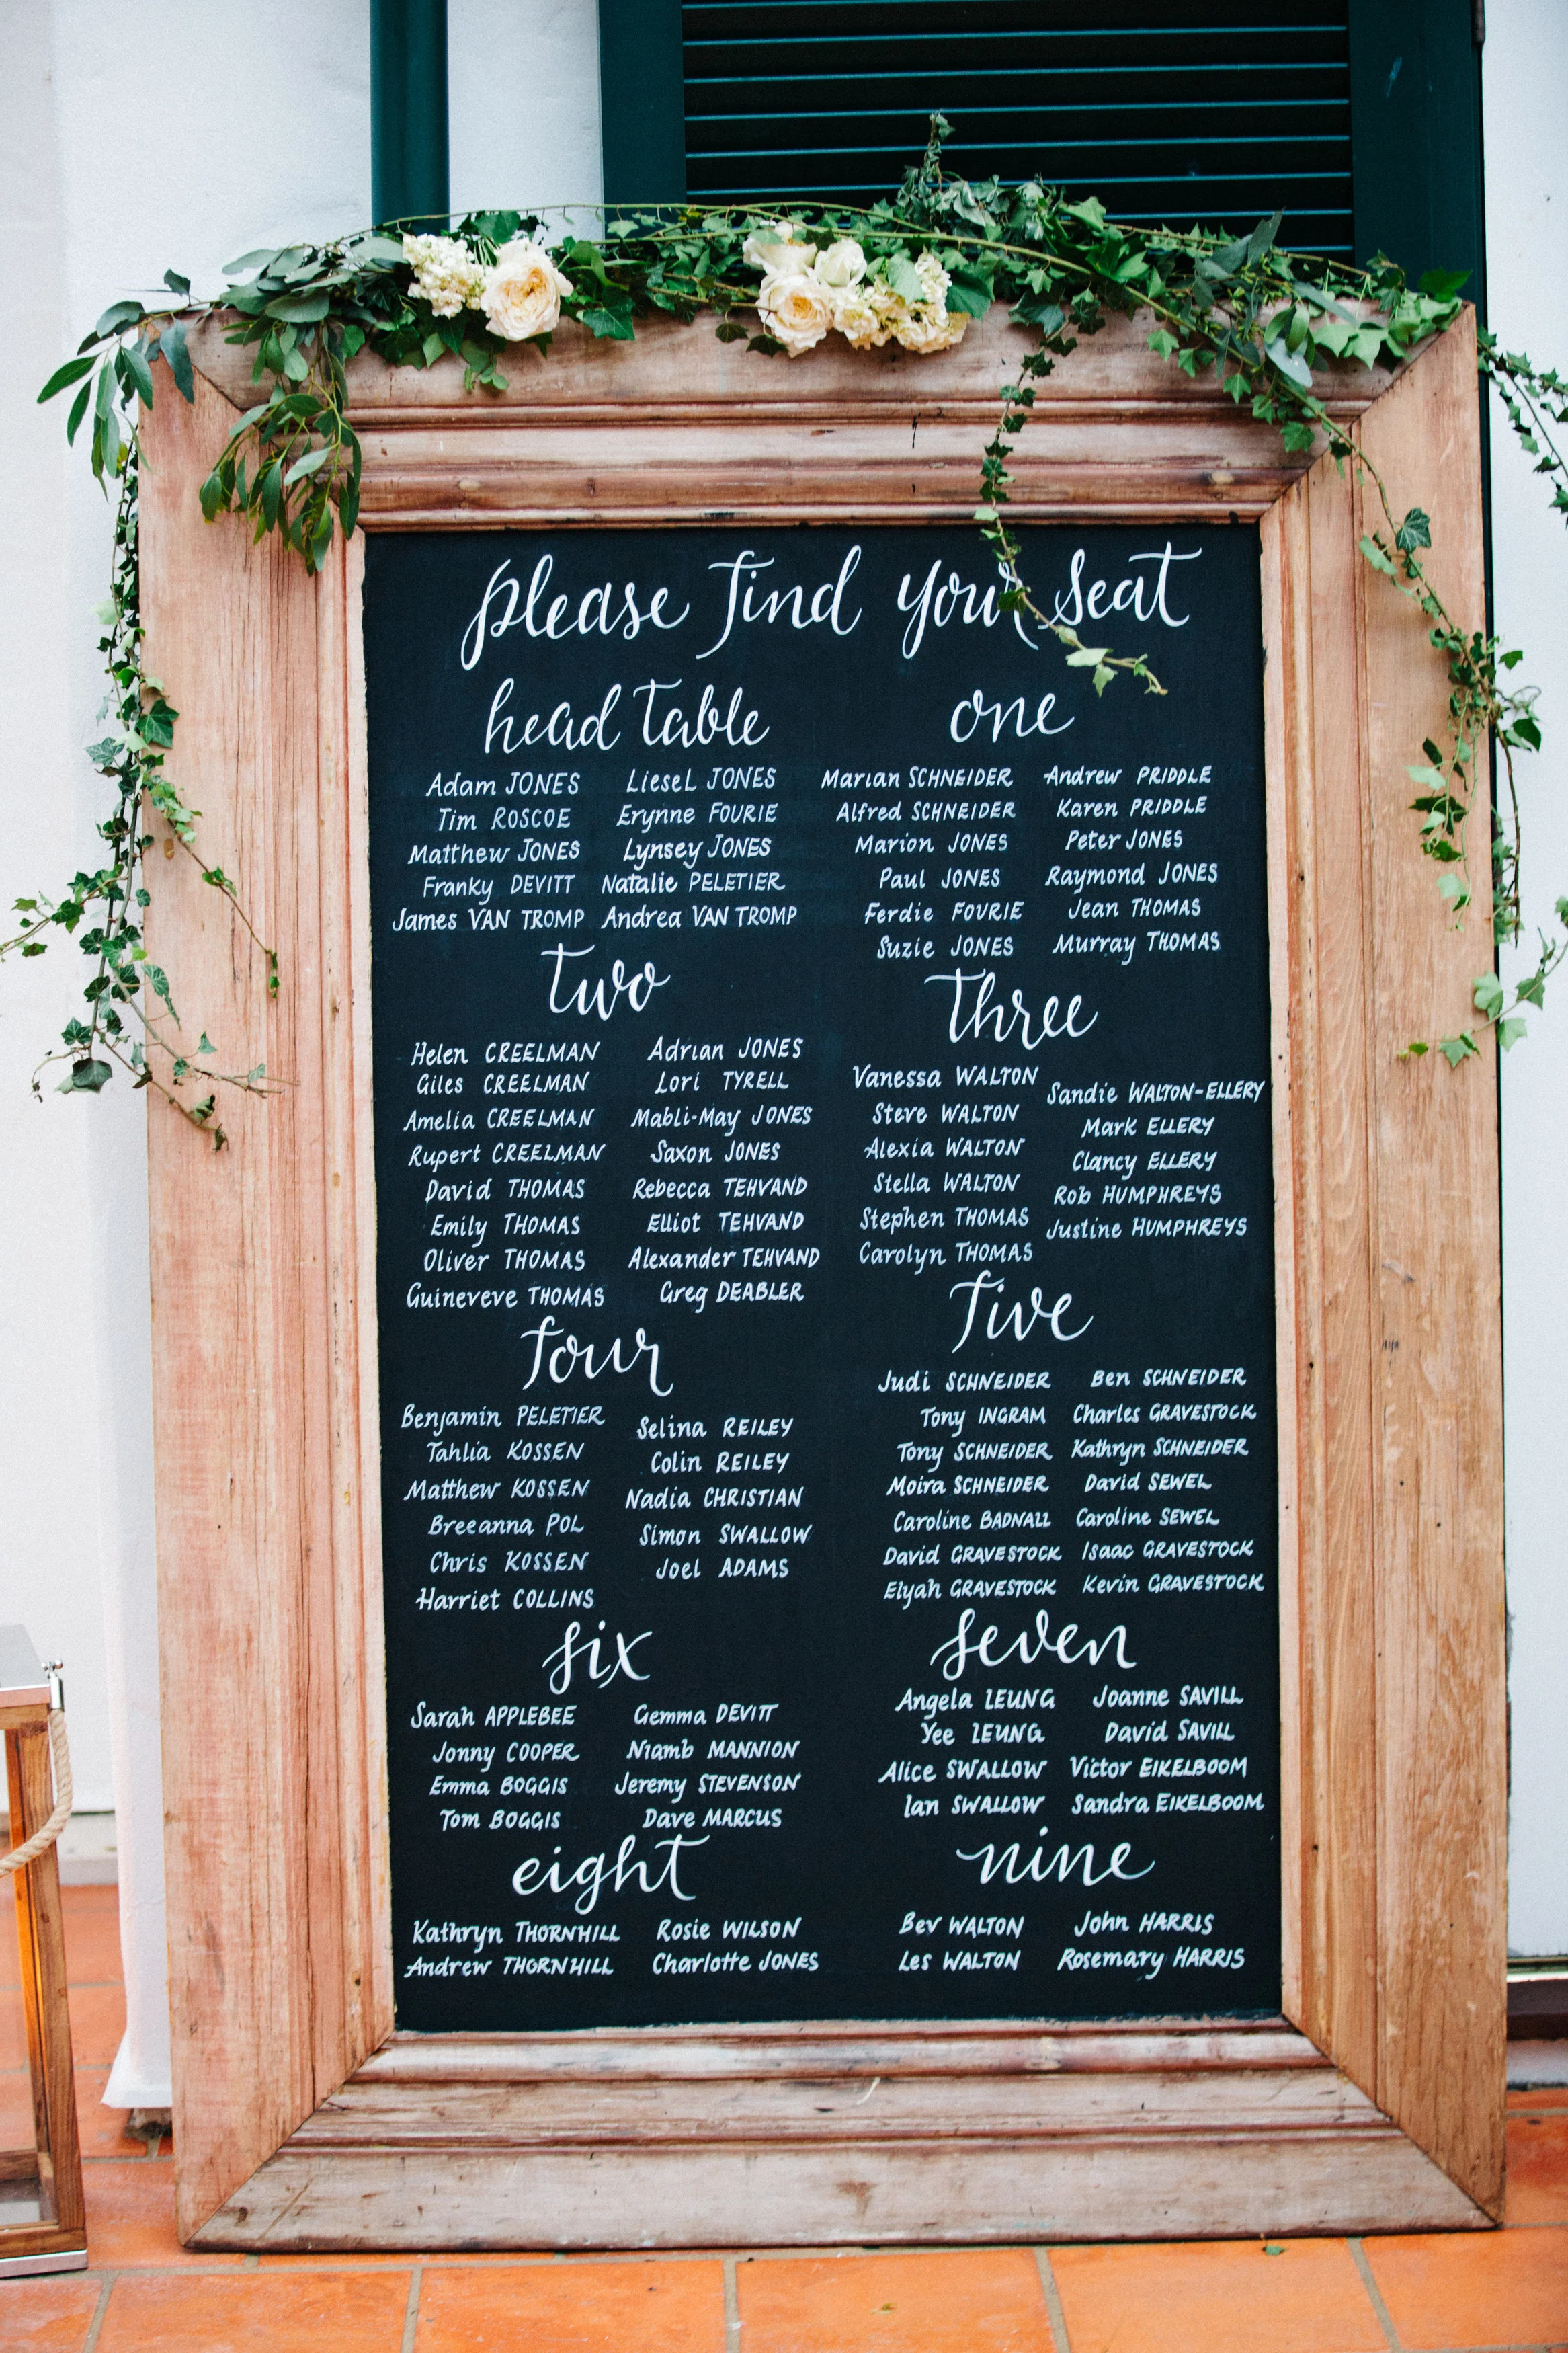 please find your seat
head table
Adam JONES Liesel JONES
Tim ROSCOE Erynne FOURIE
Matthew JONES Lynsey JONES
Franky DEVITT Natalie PELETIER
James VAN TROMP Andrea VAN TROMP
one
Marian SCHNEIDER Andrew PRIDDLE
Alfred SCHNEIDER Karen PRIDDLE
Marion JONES Peter JONES
Paul JONES Raymond JONES
Ferdie FOURIE Jean THOMAS
Suzie JONES Murray THOMAS
two
Helen CREELMAN Adrian JONES
Giles CREELMAN Lori TYRELL
Amelia CREELMAN Mabli-May JONES
Rupert CREELMAN Saxon JONES
David THOMAS Rebecca TEHVAND
Emily THOMAS Elliot TEHVAND
Oliver THOMAS Alexander TEHVAND
Guineveve THOMAS Greg DEABLER
three
Vanessa WALTON Sandie WALTON-ELLERY
Steve WALTON Mark ELLERY
Alexia WALTON Clancy ELLERY
Stella WALTON Rob HUMPHREYS
Stephen THOMAS Justine HUMPHREYS
Carolyn THOMAS
four
Benjamin PELETIER Selina REILEY
Tahlia KOSSEN Colin REILEY
Matthew KOSSEN Nadia CHRISTIAN
Breeanna POL Simon SWALLOW
Chris KOSSEN Joel ADAMS
Harriet COLLINS
five
Judi SCHNEIDER Ben SCHNEIDER
Tony INGRAM Charles GRAVESTOCK
Tony SCHNEIDER Kathryn SCHNEIDER
Moira SCHNEIDER David SEWEL
Caroline BADNALL Caroline SEWEL
David GRAVESTOCK Isaac GRAVESTOCK
Elyah GRAVESTOCK Kevin GRAVESTOCK
six
Sarah APPLEBEE Gemma DEVITT
Jonny COOPER Niamb MANNION
Emma BOGGIS Jeremy STEVENSON
Tom BOGGIS Dave MARCUS
seven
Angela LEUNG Joanne SAVILL
Yee LEUNG David SAVILL
Alice SWALLOW Victor EIKELBOOM
Ian SWALLOW Sandra EIKELBOOM
eight
Kathryn THORNHILL Rosie WILSON
Andrew THORNHILL Charlotte JONES
nine
Bev WALTON John HARRIS
Les WALTON Rosemary HARRIS